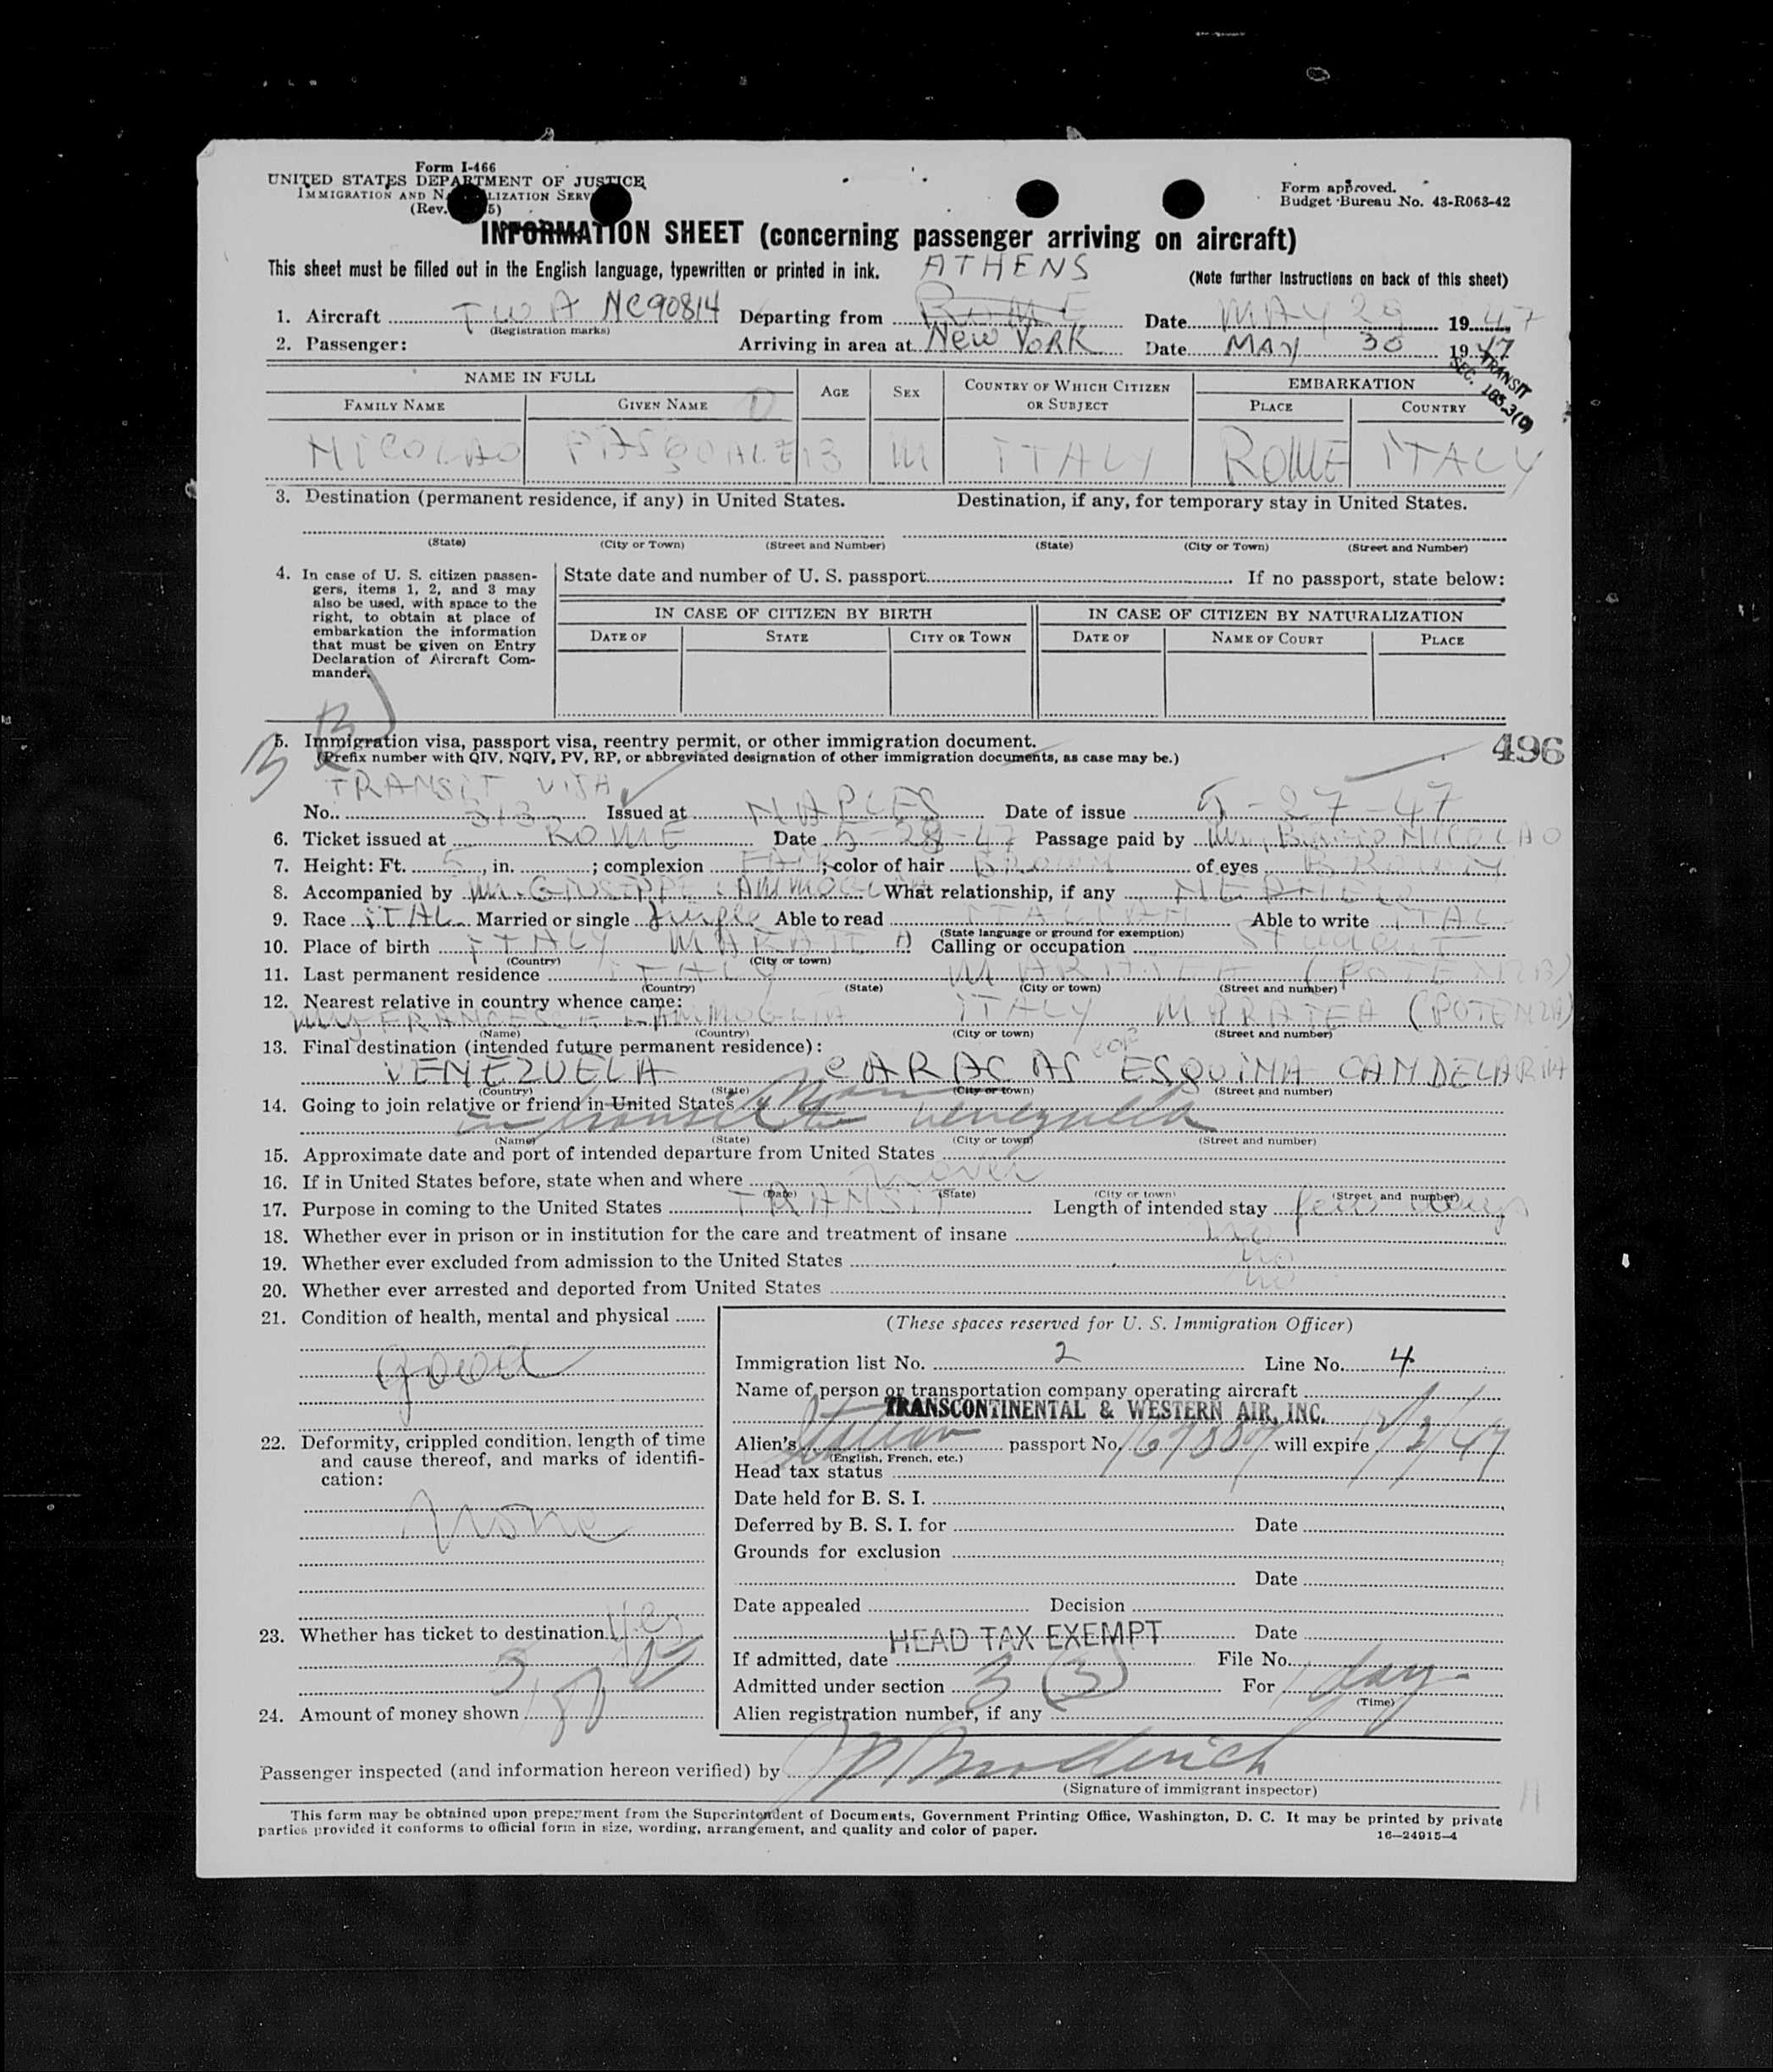 Form I-466
UNITED STATES DEPARTMENT OF JUSTICE
IMMIGRATION AND NATURALIZATION SERV
(Rev. 5)
Form approved.
Budget Bureau No. 43-R063-42
INFORMATION SHEET (concerning passenger arriving on aircraft)
This sheet must be filled out in the English language, typewritten or printed in ink. ATHENS (Note further instructions on back of this sheet)
1. Aircraft TWA NC90814 Departing from ROME Date MAY 29 1947
(Registration marks)
2. Passenger: Arriving in area at New YORK Date MAY 30 1947
TRANSIT
SEC. 165.3(C)
NAME IN FULL AGE SEX COUNTRY OF WHICH CITIZEN OR SUBJECT EMBARKATION
FAMILY NAME GIVEN NAME PLACE COUNTRY
NICOLAO PASQUALE 13 M ITALY ROME ITALY
3. Destination (permanent residence, if any) in United States. Destination, if any, for temporary stay in United States.
(State) (City or Town) (Street and Number) (State) (City or Town) (Street and Number)
4. In case of U. S. citizen passengers, items 1, 2, and 3 may also be used, with space to the right, to obtain at place of embarkation the information that must be given on Entry Declaration of Aircraft Commander.
State date and number of U. S. passport If no passport, state below:
IN CASE OF CITIZEN BY BIRTH IN CASE OF CITIZEN BY NATURALIZATION
DATE OF STATE CITY OR TOWN DATE OF NAME OF COURT PLACE
5. Immigration visa, passport visa, reentry permit, or other immigration document. 496
(Prefix number with QIV, NQIV, PV, RP, or abbreviated designation of other immigration documents, as case may be.)
TRANSIT VISA
No. 313 Issued at NAPLES Date of issue 5-27-47
6. Ticket issued at ROME Date 5-28-47 Passage paid by Mr. BIAGIO NICOLAO
7. Height: Ft. 5, in. ; complexion FAIR; color of hair BROWN of eyes BROWN
8. Accompanied by Mr. GIUSEPPE What relationship, if any NEPHEW
9. Race ITAL Married or single Single Able to read ITALIAN Able to write ITAL
(State language or ground for exemption)
10. Place of birth ITALY Calling or occupation Student
(Country) (City or town)
11. Last permanent residence ITALY MARATEA (POTENZA)
(Country) (State) (City or town) (Street and number)
12. Nearest relative in country whence came:
ITALY MARATEA (POTENZA)
(Name) (Country) (City or town) (Street and number)
13. Final destination (intended future permanent residence):
VENEZUELA CARACAS ESQUINA CANDELARIA
(Country) (State) (City or town) (Street and number)
14. Going to join relative or friend in United States
in transit to Venezuela
(Name) (State) (City or town) (Street and number)
15. Approximate date and port of intended departure from United States
16. If in United States before, state when and where never
(Date) (State) (City or town) (Street and number)
17. Purpose in coming to the United States TRANSIT Length of intended stay few days
18. Whether ever in prison or in institution for the care and treatment of insane no
19. Whether ever excluded from admission to the United States no
20. Whether ever arrested and deported from United States no
21. Condition of health, mental and physical
good
22. Deformity, crippled condition, length of time and cause thereof, and marks of identification:
None
23. Whether has ticket to destination Yes
24. Amount of money shown
(These spaces reserved for U. S. Immigration Officer)
Immigration list No. 2 Line No. 4
Name of person or transportation company operating aircraft
TRANSCONTINENTAL & WESTERN AIR, INC.
Alien's Italian passport No. will expire
(English, French, etc.)
Head tax status
Date held for B. S. I.
Deferred by B. S. I. for Date
Grounds for exclusion
Date
Date appealed Decision
HEAD TAX EXEMPT Date
If admitted, date File No.
Admitted under section 3 (3) For 1 day
(Time)
Alien registration number, if any
Passenger inspected (and information hereon verified) by
(Signature of immigrant inspector)
This form may be obtained upon prepayment from the Superintendent of Documents, Government Printing Office, Washington, D. C. It may be printed by private
parties provided it conforms to official form in size, wording, arrangement, and quality and color of paper.
16—24915-4